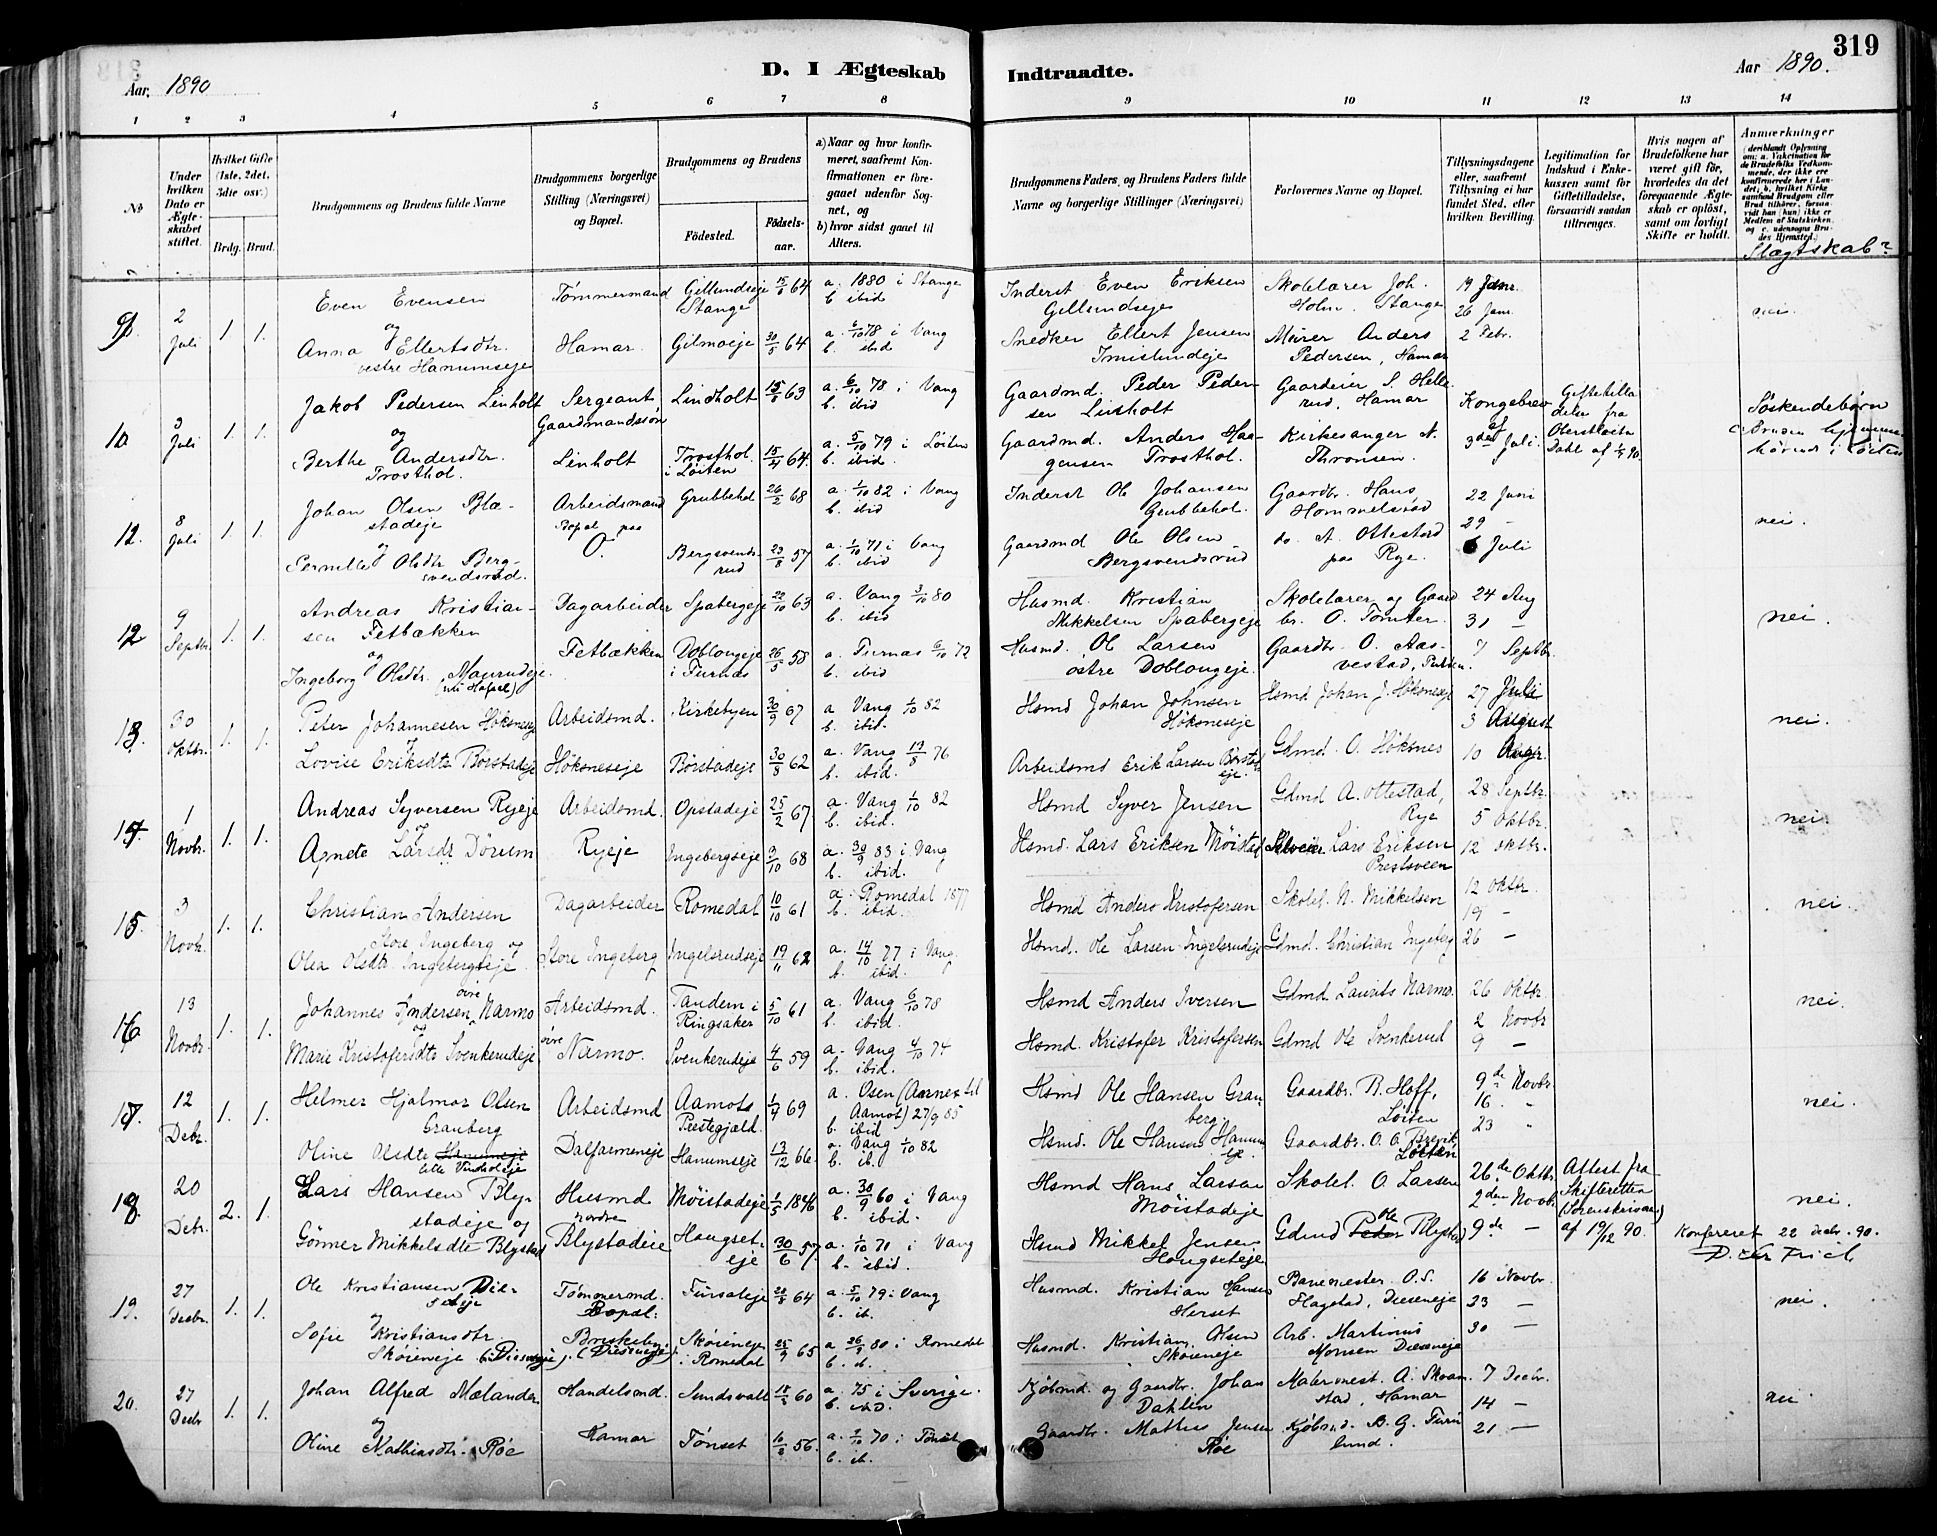 319
Aar. 1890
D. I Ægteskab Indtraadte.
Aar 1890.
1 2 3 4 5 6 7 8 9 10 11 12 13 14
No
Under hvilken Dato er Ægteskabet stiftet.
Hvilket Gifte (1ste, 2det, 3die osv.)
Brdg. Brud.
Brudgommens og Brudens fulde Navne
Brudgommens borgerlige Stilling (Næringsvei) og Bopæl.
Brudgommens og Brudens
Fødested.
Fødselsaar.
a) Naar og hvor konfirmeret, saafremt Konfirmationen er foregaaet udenfor Sognet, og
b) hvor sidst gaaet til Alters.
Brudgommens Faders, og Brudens Faders fulde Navne og borgerlige Stillinger (Næringsvei)
Forlovernes Navne og Bopæl.
Tillysningsdagene eller, saafremt Tillysning ei har fundet Sted, efter hvilken Bevilling.
Legitimation for Indskud i Enkekassen samt for Giftetilladelse, forsaavidt saadan tiltrænges.
Hvis nogen af Brudefolkene har været gift før, hvorledes da det foregaaende Ægteskab er opløst, samt om lovligt Skifte er holdt.
Anmærkninger (deriblandt Oplysning om: a. Vakcination for de Brudefolks Vedkommende, der ikke ere konfirmerede her i Landet, b. hvilket Kirkesamfund Brudgom eller Brud tilhører, forsaavidt han (hun) ikke er Medlem af Statskirken, og c. udensogns Brudes Hjemsted.)
Slægtskab?
9. 2 Juli 1. 1. Even Evensen Tømmermand Gillundseje Stange 15/8 64 a. 1880 i Stange b. ibid Inderst Even Eriksen Gillundseje Skolelærer Joh. Holm. Stange 19 Janr. 26 Janr. 2 Febr. nei.
og
Anna Ellertsdtr. vestre Hanumseje Hamar. Gilmoeje 30/5 64 a. 6/10 78 i Vang b. ibid Snedker Ellert Jensen Imislundeje Murer Anders Pedersen, Hamar
10 3 Juli 1. 1. Jakob Pedersen Linholt Sergeant Gaardmandssøn Lindholt 15/8 63 a. 6/10 78 i Vang b. ibid. Gaardmd. Peder Pedersen Linholt Gaardeier S. Hellerud, Hamar Kongebrev af 3die Juli. Giftetilladelse fra Oberstløitn Dahl af 1/7 90. Søskendebørn
og
Berthe Andersdtr. Trosthol. Linholt Trosthol. i Løiten 15/4 64. a. 5/10 79 i Løiten b. ibid. Gaardmd. Anders Haagensen Trosthol. Kirkesanger N. Thronsen. c. Bruden hjemmehørende i Løiten
12. 8 Juli 1. 1. Johan Olsen Blæstadeje Arbeidsmand Bopæl paa O. Grubbehol 26/2 68 a. 1/10 82 i Vang b. ibid Inderst Ole Johansen Grubbehol. Gaardbr. Hans Hommelstad 22 Juni 29 - 6 Juli nei.
og
Pernille Olsdtr Bergsvendsrud. Bergsvendsrud 23/8 57 a. 1/10 71 i Vang b. ibid Gaardmd Ole Olsen Bergsvendsrud do. A. Ottestad paa Rye.
12. 9 Septbr. 1. 1. Andreas Kristiansen Fetbækken Dagarbeider Spabergeje 22/10 63 a. Vang 3/10 80 b. ibid Husmd. Kristian Mikkelsen Spabergeje Skolelærer og Gaardbr. O. Tomter. 24 Aug 31 - 7 Septbr. nei.
og
Ingeborg Olsdtr. Maurudeje. Fetbækken Doblougeje i Furnæs 26/5 58 a. Furnæs 6/10 72 b. ibid Husmd. Ole Larsen østre Doblougeje. Gaardbr. O. Aasvestad,
13. 30 Oktbr. 1. 1. Peter Johannesen Høksneseje Arbeidsmd. Kirkebyen 30/9 67 a Vang 1/10 82 b. ibid. Hsmd Johan Johnsen Høksneseje Hsmd Johan J. Høksneseje 27 Juli 3 August 10 Aug. nei.
og
Lovise Eriksdtr Børstadeje Høksneseje Børstadeje 30/8 62 a. Vang 19/8 76 b. ibid. Arbeidsmd Erik Larsen Børstadeje. Gdmd. O. Høksnes
14. 1 Novbr. 1. 1. Andreas Syversen Ryeje Arbeidsmd. Opstadeje 25/2 67 a. Vang 1/10 82 b. ibid. Hsmd Syver Jensen Gdmd A. Ottestad, Rye 28 Septbr. 5 Oktbr. 12 Oktbr. nei
og
Agnete Larsdtr Dørum Ryeje Ingebergseje 9/10 68 a. 30/9 83 i Vang b. ibid. Hsmd. Lars Eriksen Møistad Selveier Lars Eriksen Prestsveen
15. 3 Novbr. 1. 1. Christian Andersen Store Ingeberg og Dagarbeider Romedal 10/10 61 a. Romedal 1877 b. ibid. Hsmd Anders Kristofersen Skolel. N. Mikkelsen 12 Oktbr. 19 - 26 - nei.
Olea Olsdtr. Ingebergseje. Store Ingeberg Ingelsrudseje 19/11 62 a. 14/10 77 i Vang b. ibid. Hsmd. Ole Larsen Ingelsrudeje Gdmd. Christian Ingeberg
16 13 Novbr. 1. 1. Johannes Andersen øvre Narmo Arbeidsmd. Tandem i Ringsaker 5/10 61 a. Vang 6/10 78 b. ibid. Hsmd Anders Iversen Gdmd. Laurits Narmo. 26 Oktbr. 2 Novbr 9 - nei.
og
Marie Kristofersdtr Svenkerudeje øvre Narmo. Svenkerudeje 4/6 59 a. Vang 4/10 74 b. ibid. Hsmd. Kristofer Kristofersen Gdmd Ole Svenkerud
17 12 Debr. 1. 1. Helmer Hjalmar Olsen Granberg Arbeidsmd Aamots Prestegjæld. 1/9 69 a. Osen (Annex til Aamot) 27/9 85 b. ibid Hsmd Ole Hansen Granberg Gaardbr. R. Hoff, Løiten 9de Novbr. 16 " 23 " nei.
Oline Olsdtr Hanumseje lille Vindoleje Dalfarmeneje Hanumseje 13/12 66. a. Vang 1/10 82 b. ib. Hsmd. Ole Hansen Hanumseje Gaardbr. O. O. Brevik Løiten
18. 20 Debr. 2. 1. Lars Hansen Blystadeje og Husmd Møistadeje 1/5 1846 a. 30/9 60 i Vang b. ibid. Hsmd Hans Larsen Møistadeje Skolel. O Larsen 26de Oktbr 2den Novbr 9de - Attest fra Skifteretten (Sorenskriveren) af 19/12 90. nei.
Gønner Mikkelsdtr Blystad nordre Blystadeie Haugseteje 30/6 57. a. 1/10 71 i Vang b. ibid. Hsmd Mikkel Jensen Haugseteje Gdmd Peder Ole Blystad Konfereret 22 Decbr. 90.
19. 27 Decbr. 1. 1. Ole Kristiansen Dieseteje Tømmermd. Bopæl: Furuseteje 20/8 64 a. 5/10 79 i Vang b. ib. Husmd. Kristian Hansen Herset Banemester O. S. Flagstad, Dieseneje 16 Novbr. 23 - 30 - nei.
og
Sofie Kristiansdtr. Skøieneje (i Dieseneje). Briskeby (Dieseneje). Skøieneje i Romedal 25/9 65 a 26/9 80 i Romedal b. ib. Husmd. Kristian Olsen Skøieneje Arb. Martinus Monsen Dieseneje
20. 27 Decbr 1. 1. Johan Alfred Mælander Handelsmd. Sundsvall 18/2 60 a. 75 i Sverige. b. ibid. Kjøbmd. og Gaardbr. Johan Dahlin Malermest. A. Skaanstad, Hamar 7 Decbr. 14 - 21 - nei
og
Oline Mathiasdtr. Røe Hamar Tønset 16/8 56. a. 2/10 70 i Tønset b. ib. Gaardbr. Mathis Jensen Røe Kjøbmd. B. G. Furulund.